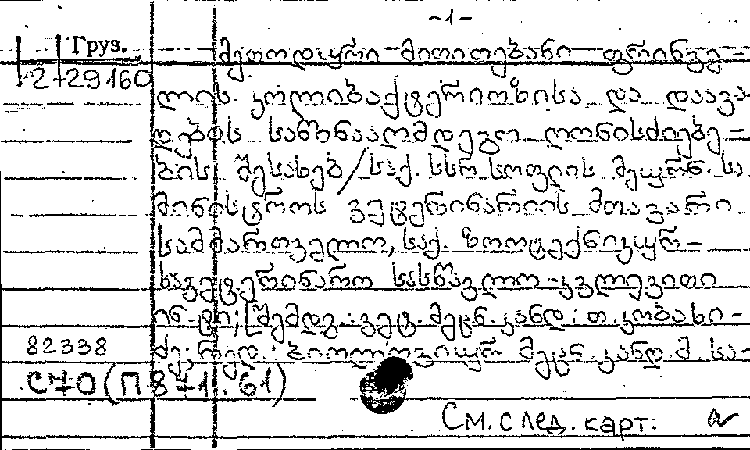 -1-
Груз.
მეთოდური მითითებანი ფრინვე-
2-29160
ლის კოლიბაქტერიოზისა და დაავა-
დების საწინააღმდეგო ღონისძიებე-
ბის შესახებ/საქ. სსრ სოფლის მეურნ. სა-
მინისტროს ვეტერინარიის მთავარი
სამმართველო, საქ. ზოოტექნიკურ-
სავეტერინარო სასწავლო-კვლევითი
ინ-ტი; [შემდგ.: ვეტ. მეცნ. კანდ. თ. კობახი-
82338
ძე; რედ.: ბიოლოგიურ მეცნ. კანდ. მ. სა-
С70(П871.61)
См. след. карт.